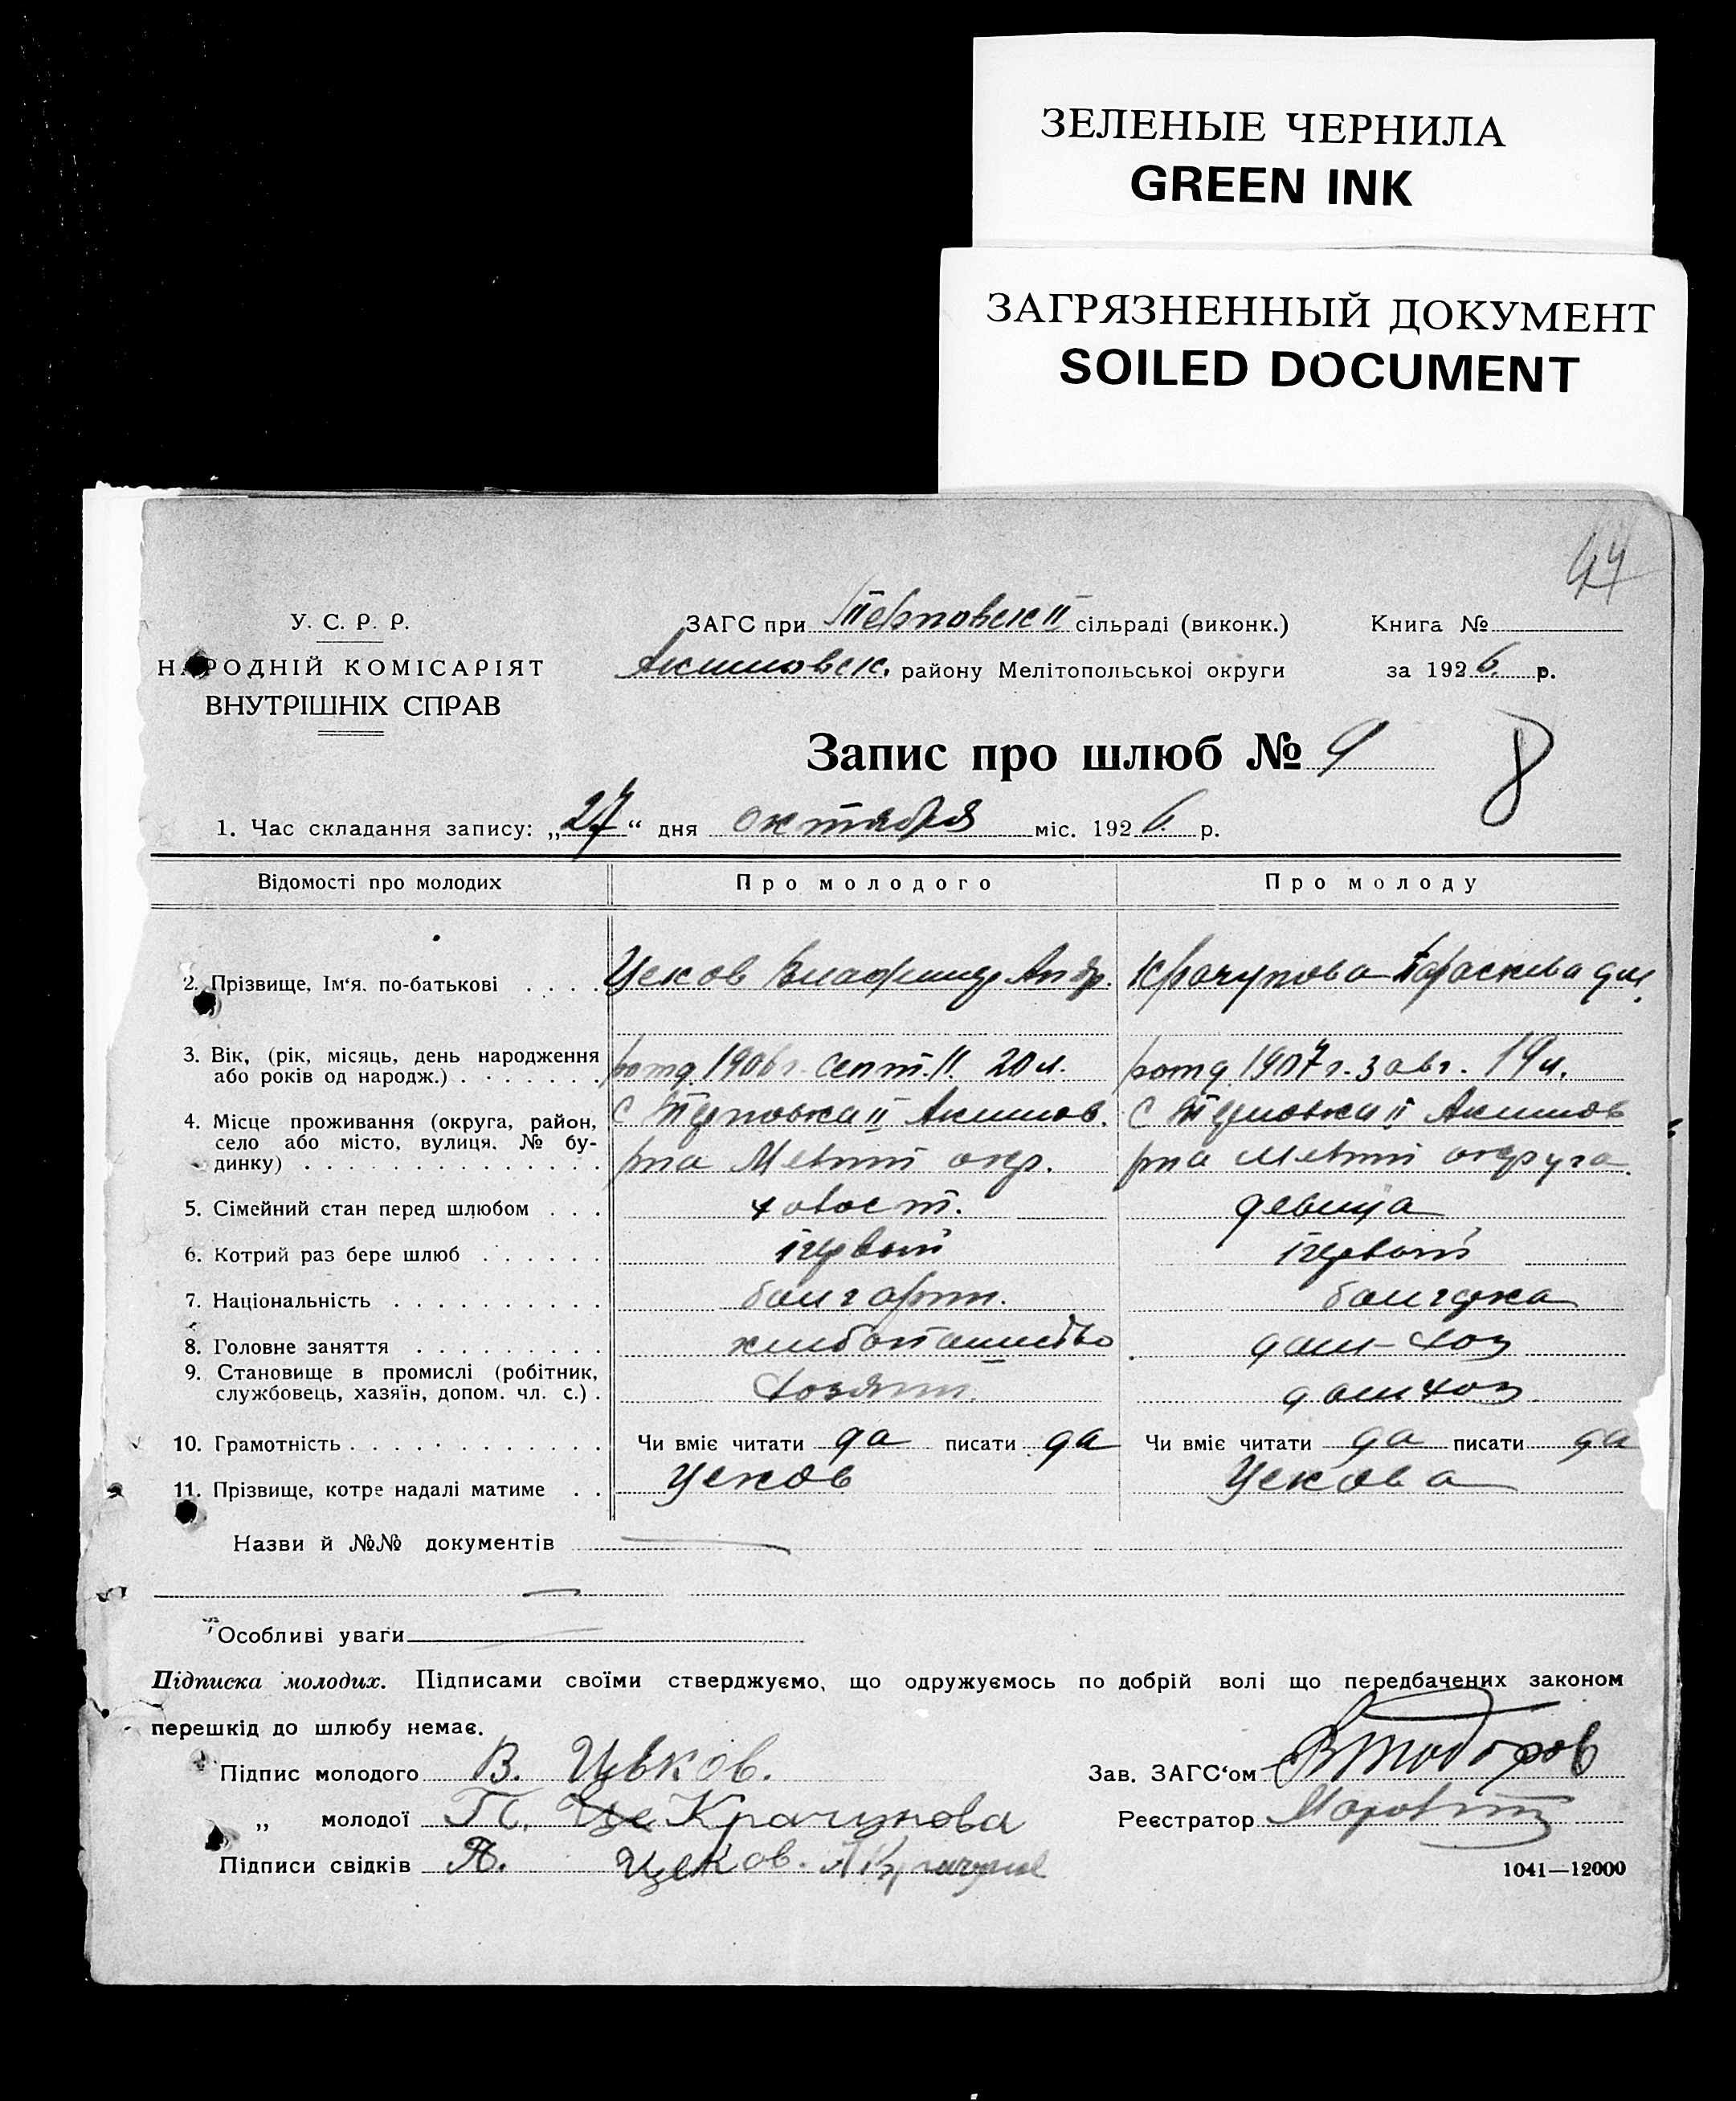 ЗЕЛЕНЫЕ ЧЕРНИЛА
GREEN INK
ЗАГРЯЗНЕННЫЙ ДОКУМЕНТ
SOILED DOCUMENT
44
У. С. Р. Р.
НАРОДНІЙ КОМІСАРІЯТ
ВНУТРІШНІХ СПРАВ
ЗАГС при Терновск II сільраді (виконк.)
Акимовск. району Мелітопольської округи
Книга №
за 1926. р.
Запис про шлюб № 9
8
1. Час складання запису: „27“ дня октября міс. 1926. р.
Відомості про молодих Про молодого Про молоду
2. Прізвище, Ім'я, по-батькові . . . . Цеков Владимир Андр. Крачунова Параскева
3. Вік, (рік, місяць, день народження або років од народж.) . . . . . . . рожд. 1906 г. сент. 11. 20 л. рожд. 1907 г. 3 авг. 19 л.
4. Місце проживання (округа, район, село або місто, вулиця, № будинку) . . . . . . . . . . . . . . с Терновка II Акимов. с Терновка II Акимов
рна Мелит окр. рна Мелит округа.
5. Сімейний стан перед шлюбом . . . холост. девица
6. Котрий раз бере шлюб . . . . . . первый первый
7. Національність . . . . . . . . . . болгарин. болгарка
8. Головне заняття . . . . . . . . . хлебопашество дом-хоз
9. Становище в промислі (робітник, службовець, хазяїн, допом. чл. с.) . хозяин. домхоз
10. Грамотність . . . . . . . . . . . . Чи вміє читати да писати да Чи вміє читати да писати да
11. Прізвище, котре надалі матиме . . Цеков Цекова
Назви й №№ документів
Особливі уваги
Підписка молодих. Підписами своїми стверджуємо, що одружуємось по добрій волі що передбачених законом
перешкід до шлюбу немає.
Підпис молодого В. Цеков. Зав. ЗАГС'ом ВТодоров
„ молодої П. Це Крачунова Реєстратор
Підписи свідків Цеков.
1041—12000